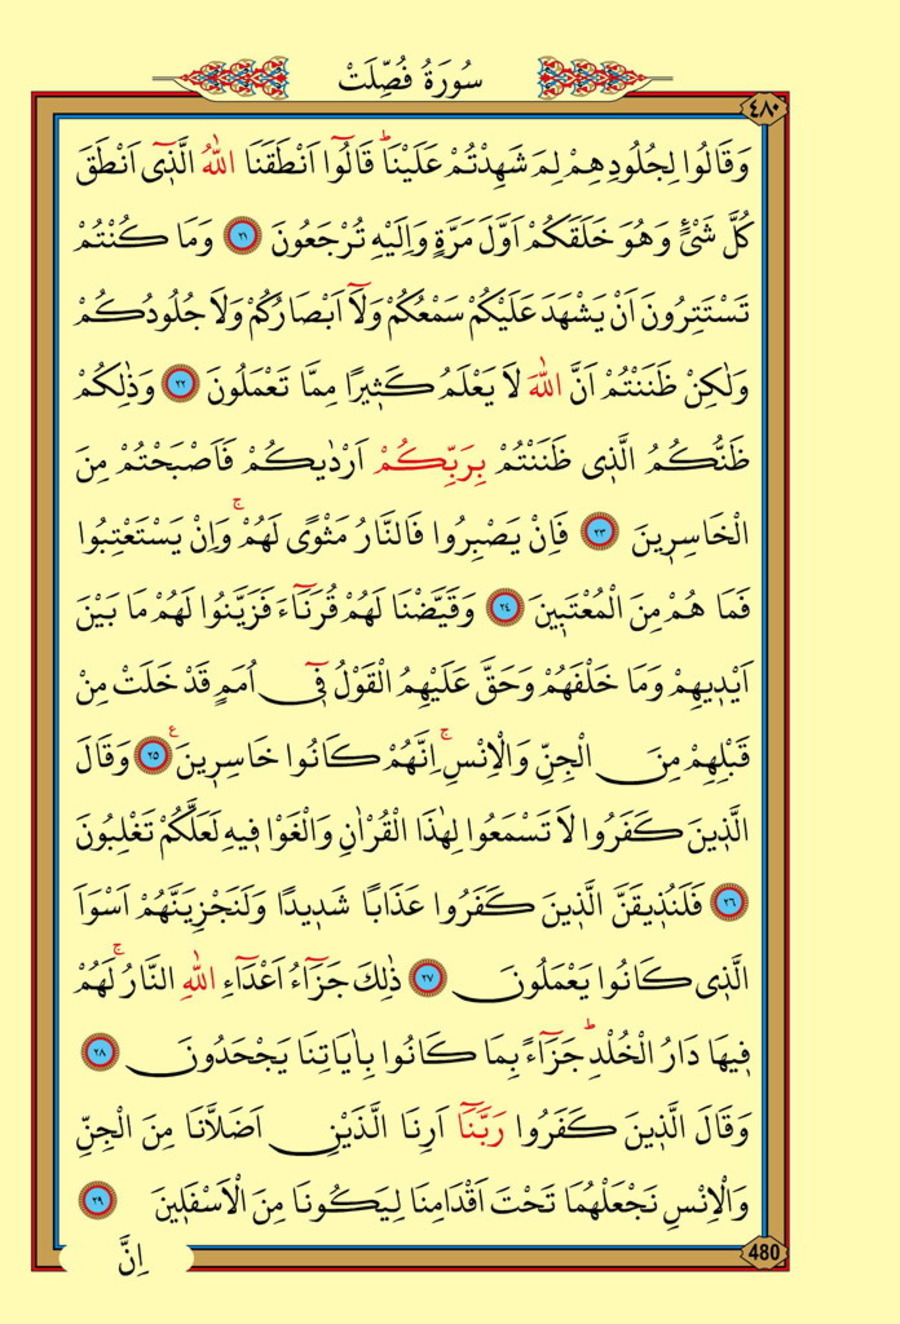 سُورَةُ فُصِّلَتْ
٤٨٠
وَقَالُوا لِجُلُودِهِمْ لِمَ شَهِدْتُمْ عَلَيْنَاۜ قَالُٓوا اَنْطَقَنَا اللّٰهُ الَّذ۪ٓى اَنْطَقَ
كُلَّ شَىْءٍ وَهُوَ خَلَقَكُمْ اَوَّلَ مَرَّةٍ وَاِلَيْهِ تُرْجَعُونَ ﴿٢١﴾ وَمَا كُنْتُمْ
تَسْتَتِرُونَ اَنْ يَشْهَدَ عَلَيْكُمْ سَمْعُكُمْ وَلَٓا اَبْصَارُكُمْ وَلَا جُلُودُكُمْ
وَلٰكِنْ ظَنَنْتُمْ اَنَّ اللّٰهَ لَا يَعْلَمُ كَث۪يرًا مِمَّا تَعْمَلُونَ ﴿٢٢﴾ وَذٰلِكُمْ
ظَنُّكُمُ الَّذ۪ى ظَنَنْتُمْ بِرَبِّكُمْ اَرْدٰيكُمْ فَاَصْبَحْتُمْ مِنَ
الْخَاسِر۪ينَ ﴿٢٣﴾ فَاِنْ يَصْبِرُوا فَالنَّارُ مَثْوًى لَهُمْۚ وَاِنْ يَسْتَعْتِبُوا
فَمَا هُمْ مِنَ الْمُعْتَب۪ينَ ﴿٢٤﴾ وَقَيَّضْنَا لَهُمْ قُرَنَٓاءَ فَزَيَّنُوا لَهُمْ مَا بَيْنَ
اَيْد۪يهِمْ وَمَا خَلْفَهُمْ وَحَقَّ عَلَيْهِمُ الْقَوْلُ ف۪ٓى اُمَمٍ قَدْ خَلَتْ مِنْ
قَبْلِهِمْ مِنَ الْجِنِّ وَالْاِنْسِۚ اِنَّهُمْ كَانُوا خَاسِر۪ينَ ع ﴿٢٥﴾ وَقَالَ
الَّذ۪ينَ كَفَرُوا لَا تَسْمَعُوا لِهٰذَا الْقُرْاٰنِ وَالْغَوْا ف۪يهِ لَعَلَّكُمْ تَغْلِبُونَ
﴿٢٦﴾ فَلَنُذ۪يقَنَّ الَّذ۪ينَ كَفَرُوا عَذَابًا شَد۪يدًا وَلَنَجْزِيَنَّهُمْ اَسْوَاَ
الَّذ۪ى كَانُوا يَعْمَلُونَ ﴿٢٧﴾ ذٰلِكَ جَزَٓاءُ اَعْدَٓاءِ اللّٰهِ النَّارُۚ لَهُمْ
ف۪يهَا دَارُ الْخُلْدِۜ جَزَٓاءً بِمَا كَانُوا بِاٰيَاتِنَا يَجْحَدُونَ ﴿٢٨﴾
وَقَالَ الَّذ۪ينَ كَفَرُوا رَبَّنَٓا اَرِنَا الَّذَيْنِ اَضَلَّانَا مِنَ الْجِنِّ
وَالْاِنْسِ نَجْعَلْهُمَا تَحْتَ اَقْدَامِنَا لِيَكُونَا مِنَ الْاَسْفَل۪ينَ ﴿٢٩﴾
480
اِنَّ